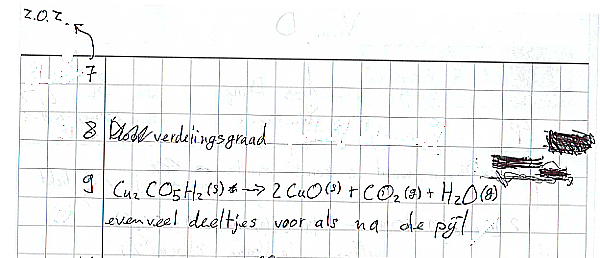 z.o.z.
7
8 verdelingsgraad
9 Cu₂CO₅H₂(s) → 2 CuO(s) + CO₂(g) + H₂O(g)
evenveel deeltjes voor als na de pijl